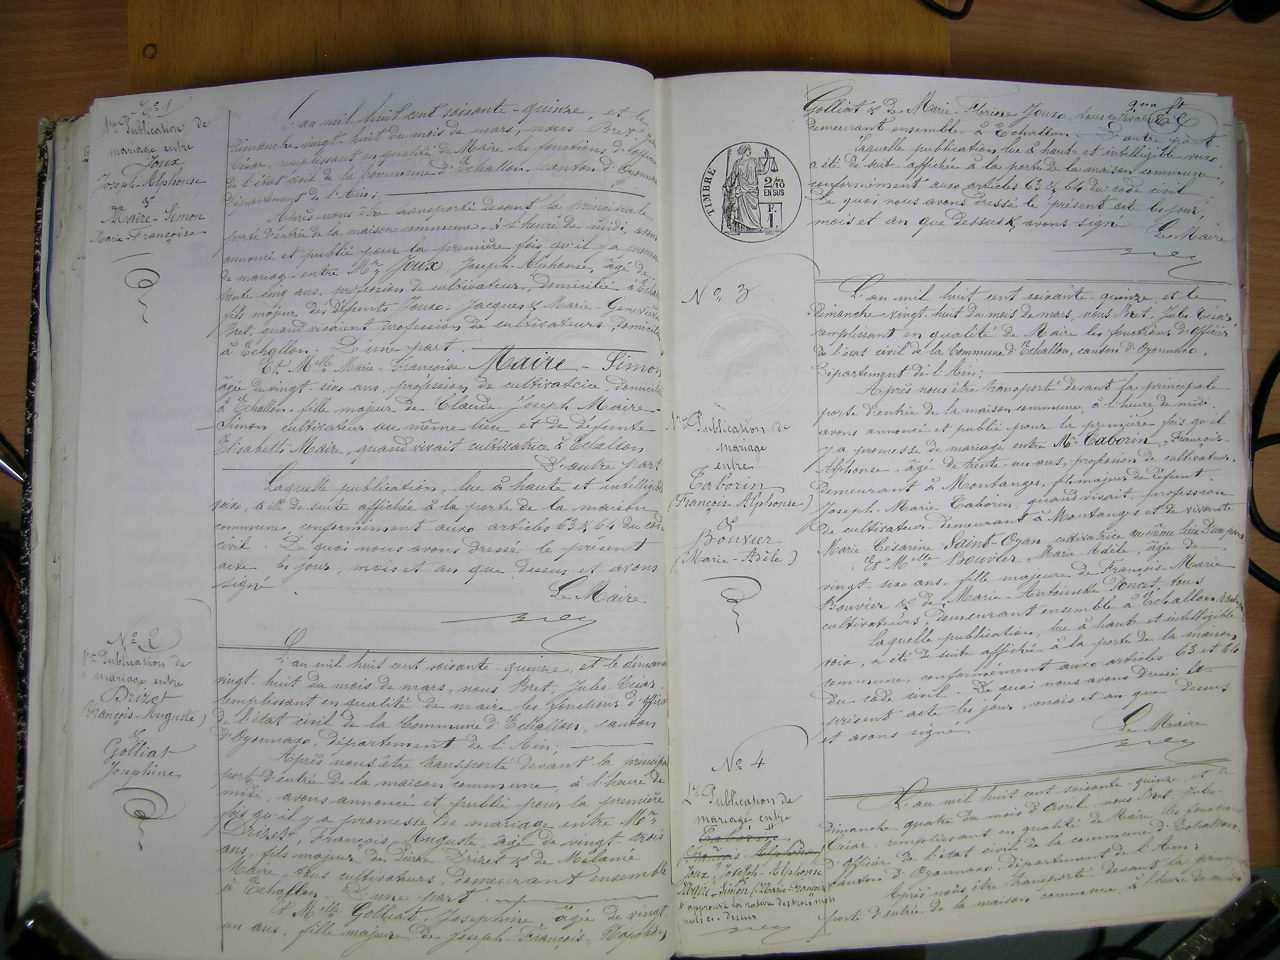 N° 1
1re Publication de
mariage entre
Joux
Joseph-Alphonse
&
Maire-Simon
Marie Françoise
L'an mil huit cent soixante-quinze, et le
dimanche vingt-huit du mois de mars, nous Bret Ju
César, remplissant en qualité de Maire, les fonctions d'offi
de l'état civil de la Commune d'Echallon, canton d'Oyonna
département de l'Ain;
Après nous être transporté devant la principale
porte d'entrée de la maison commune, à l'heure de midi, avons
annoncé et publié pour la première fois qu'il y a promes
de mariage entre Mr Joux Joseph-Alphonse, âgé de
trente cinq ans, profession de cultivateur, domicilié à Echal
fils majeur des défunts Joux Jacques & Marie-Geneviève
Bret, quand vivaient profession de cultivateurs, domicilié
à Echallon. D'une part.
Et Melle Marie-Françoise Maire-Simon
âgée de vingt six ans, profession de cultivatrice domicilié
à Echallon, fille majeur de Claude-Joseph Maire-
Simon cultivateur au même lieu et de défunte
Elisabeth Maire, quand vivait cultivatrice à Echallon
D'autre part
Laquelle publication, lue à haute et intelligible
voix, a été de suite affichée à la porte de la maison
commune, conformément aux articles 63 & 64 du code
civil. De quoi nous avons dressé le présent
acte les jour, mois et an que dessus et avons
signé.
Le Maire
Bret
N° 2
1re Publication de
mariage entre
Drizet
(François-Auguste)
&
Golliat
Joséphine
L'an mil huit cent soixante-quinze, et le diman
vingt-huit du mois de mars, nous Bret, Jules César
remplissant en qualité de maire les fonctions d'officier
de l'état civil de la Commune d'Echallon, canton
d'Oyonnax, département de l'Ain;
Après nous être transporté devant la principa
porte d'entrée de la maison commune, à l'heure de
midi, avons annoncé et publié pour la première
fois qu'il y a promesse de mariage entre Mr
Drizet, François Auguste, âgé de vingt trois
ans, fils majeur de Pierre Drizet & de Mélanie
Maire, tous cultivateurs, demeurant ensemble
à Echallon. D'une part.
Et Melle Golliat, Joséphine, âgée de vingt
un ans, fille majeure de Joseph-François-
Golliat & de Marie-Thérèse Joux,
demeurant ensemble à Echallon. D'autre part
Laquelle publication lue à haute et intelligible voix
a été de suite affichée à la porte de la maison commune,
conformément aux articles 63 & 64 du code civil
De quoi nous avons dressé le présent acte les jour,
mois et an que dessus & avons signé
Le Maire
Bret
TIMBRE
2/10
EN SUS
F.
1.
N° 3
1re Publication de
mariage
entre
Taborin
(François Alphonse)
&
Bouvier
(Marie-Adèle)
L'an mil huit cent soixante-quinze, et le
dimanche vingt-huit du mois de mars, nous Bret, Jules César
remplissant en qualité de Maire les fonctions d'officier
de l'état civil de la Commune d'Echallon, canton d'Oyonnax,
département de l'Ain;
Après nous être transporté devant la principale
porte d'entrée de la maison commune, à l'heure de midi,
avons annoncé et publié pour la première fois qu'il
y a promesse de mariage entre Mr Taborin, François-
Alphonse, âgé de trente-un ans, profession de cultivateur,
demeurant à Montanges, fils majeur de défunt
Joseph-Marie Taborin, quand vivait profession
de cultivateur demeurant à Montanges et de vivante
Marie Césarine Saint-Oyan, cultivatrice au même lieu D'une part
Et Melle Bouvier, Marie Adèle, âgée de
vingt-six ans, fille majeure de François-Marie
Bouvier & de Marie-Antoinette Poncet, tous
cultivateurs, demeurant ensemble à Echallon
Laquelle publication, lue à haute et intelligible
voix, a été de suite affichée à la porte de la maison
commune, conformément aux articles 63 et 64
du code civil. De quoi nous avons dressé le
présent acte les jour, mois et an que dessus
et avons signé
Le Maire
Bret
N° 4
1re Publication de
mariage entre
Taborin
François Alphonse
Joux, Joseph-Alphonse
Maire-Simon (Marie-Françoise)
approuvé la rature des trois mots
nuls ci-dessus
Bret
L'an mil huit cent soixante-quinze, et le
dimanche quatre du mois d'Avril, nous Bret Jules
César, remplissant en qualité de Maire les fonctions
d'officier de l'état civil de la commune d'Echallon,
canton d'Oyonnax, département de l'Ain;
Après nous être transporté devant la principale
porte d'entrée de la maison commune, à l'heure de midi